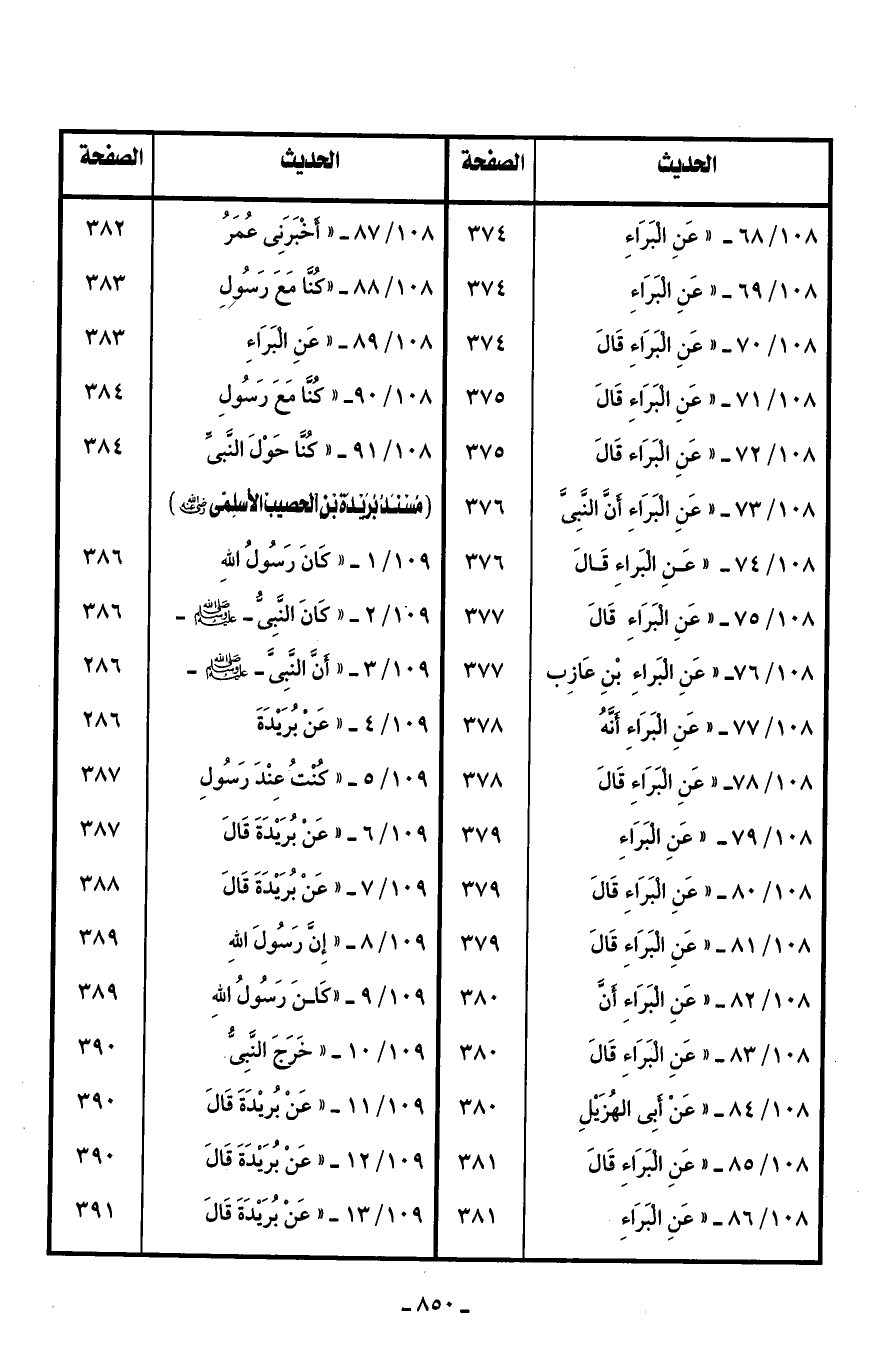 الحديث الصفحة
١٠٨/ ٦٨ ـ « عَنِ الْبَرَاءِ ٣٧٤
١٠٨/ ٦٩ ـ « عَنِ الْبَرَاءِ ٣٧٤
١٠٨/ ٧٠ ـ « عَنِ الْبَرَاءِ قَالَ ٣٧٤
١٠٨/ ٧١ ـ « عَنِ الْبَرَاءِ قَالَ ٣٧٥
١٠٨/ ٧٢ ـ « عَنِ الْبَرَاءِ قَالَ ٣٧٥
١٠٨/ ٧٣ ـ « عَنِ الْبَرَاءِ أَنَّ النَّبىَّ ٣٧٦
١٠٨/ ٧٤ ـ « عَـنِ الْبَراءِ قَـالَ ٣٧٦
١٠٨/ ٧٥ ـ « عَنِ الْبَرَاءِ قَالَ ٣٧٧
١٠٨/ ٧٦ـ « عَنِ الْبَراءِ بْنِ عَازِب ٣٧٧
١٠٨/ ٧٧ ـ « عَنِ الْبَرَاءِ أَنَّهُ ٣٧٨
١٠٨/ ٧٨ـ « عَنِ الْبَرَاءِ قَالَ ٣٧٨
١٠٨/ ٧٩ ـ « عَنِ الْبَرَاءِ ٣٧٩
١٠٨/ ٨٠ ـ « عَنِ الْبَرَاءِ قَالَ ٣٧٩
١٠٨/ ٨١ ـ « عَنِ الْبَرَاءِ قَالَ ٣٧٩
١٠٨/ ٨٢ ـ « عَنِ الْبَرَاءِ أَنَّ ٣٨٠
١٠٨/ ٨٣ ـ « عَنِ الْبَرَاءِ قَالَ ٣٨٠
١٠٨/ ٨٤ ـ « عَنْ أَبِى الهُزَيْلِ ٣٨٠
١٠٨/ ٨٥ ـ « عَنِ الْبَرَاءِ قَالَ ٣٨١
١٠٨/ ٨٦ ـ « عَنِ الْبَرَاءِ ٣٨١
الحديث الصفحة
١٠٨/ ٨٧ ـ « أَخْبَرَنِى عُمَرُ ٣٨٢
١٠٨/ ٨٨ ـ «كُنَّا مَعَ رَسُولِ ٣٨٣
١٠٨/ ٨٩ ـ « عَنِ الْبَرَاءِ ٣٨٣
١٠٨/ ٩٠ـ « كُنَّا مَعَ رَسُولِ ٣٨٤
١٠٨/ ٩١ ـ « كُنَّا حَوْلَ النَّبىِّ ٣٨٤
( مُسْنَدُ بُرَيْدَة بْنِ الحصيب الأسلِمى رضي الله عنه )
١٠٩/ ١ ـ « كَانَ رَسُولُ اللهِ ٣٨٦
١٠٩/ ٢ ـ « كَانَ النَّبىُّ ـ ﷺ ـ ٣٨٦
١٠٩/ ٣ ـ « أَنَّ النَّبىَّ ـ ﷺ ـ ٢٨٦
١٠٩/ ٤ ـ « عَنْ بُرَيْدَةَ ٢٨٦
١٠٩/ ٥ ـ « كُنْتُ عِنْدَ رَسُولِ ٣٨٧
١٠٩/ ٦ ـ « عَنْ بُرَيْدَةَ قَالَ ٣٨٧
١٠٩/ ٧ ـ « عَنْ بُرَيْدَةَ قَالَ ٣٨٨
١٠٩/ ٨ ـ « إِنَّ رَسُولَ اللهِ ٣٨٩
١٠٩/ ٩ ـ «كَـانَ رَسُولُ اللهِ ٣٨٩
١٠٩/ ١٠ ـ « خَرَجَ النَّبىُّ ٣٩٠
١٠٩/ ١١ ـ « عَنْ بُرَيْدَةَ قَالَ ٣٩٠
١٠٩/ ١٢ ـ « عَنْ بُرَيْدَةَ قَالَ ٣٩٠
١٠٩/ ١٣ ـ « عَنْ بُرَيْدَةَ قَالَ ٣٩١
ـ ٨٥٠ ـ